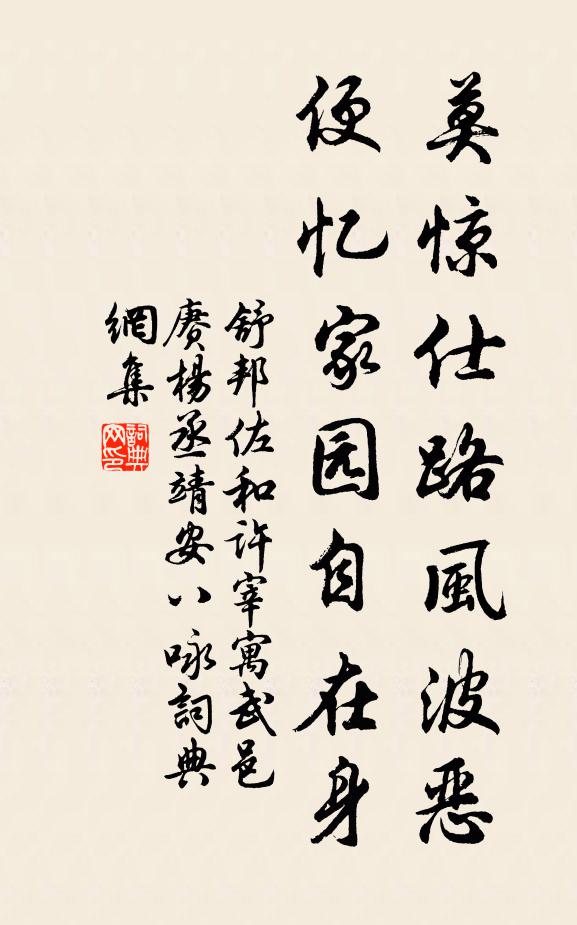 莫惊仕路風波恶
便忆家园自在身
舒邦佐和許宰寓武邑
賡楊丞靖安八咏詞典
網集
詞典
网印